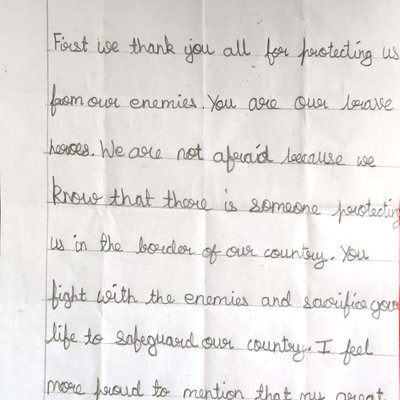 First we thank you all for protecting us
from our enemies. You are our brave
heroes. We are not afraid because we
know that there is someone protecting
us in the border of our country. You
fight with the enemies and sacrifice your
life to safeguard our country. I feel
more proud to mention that my great